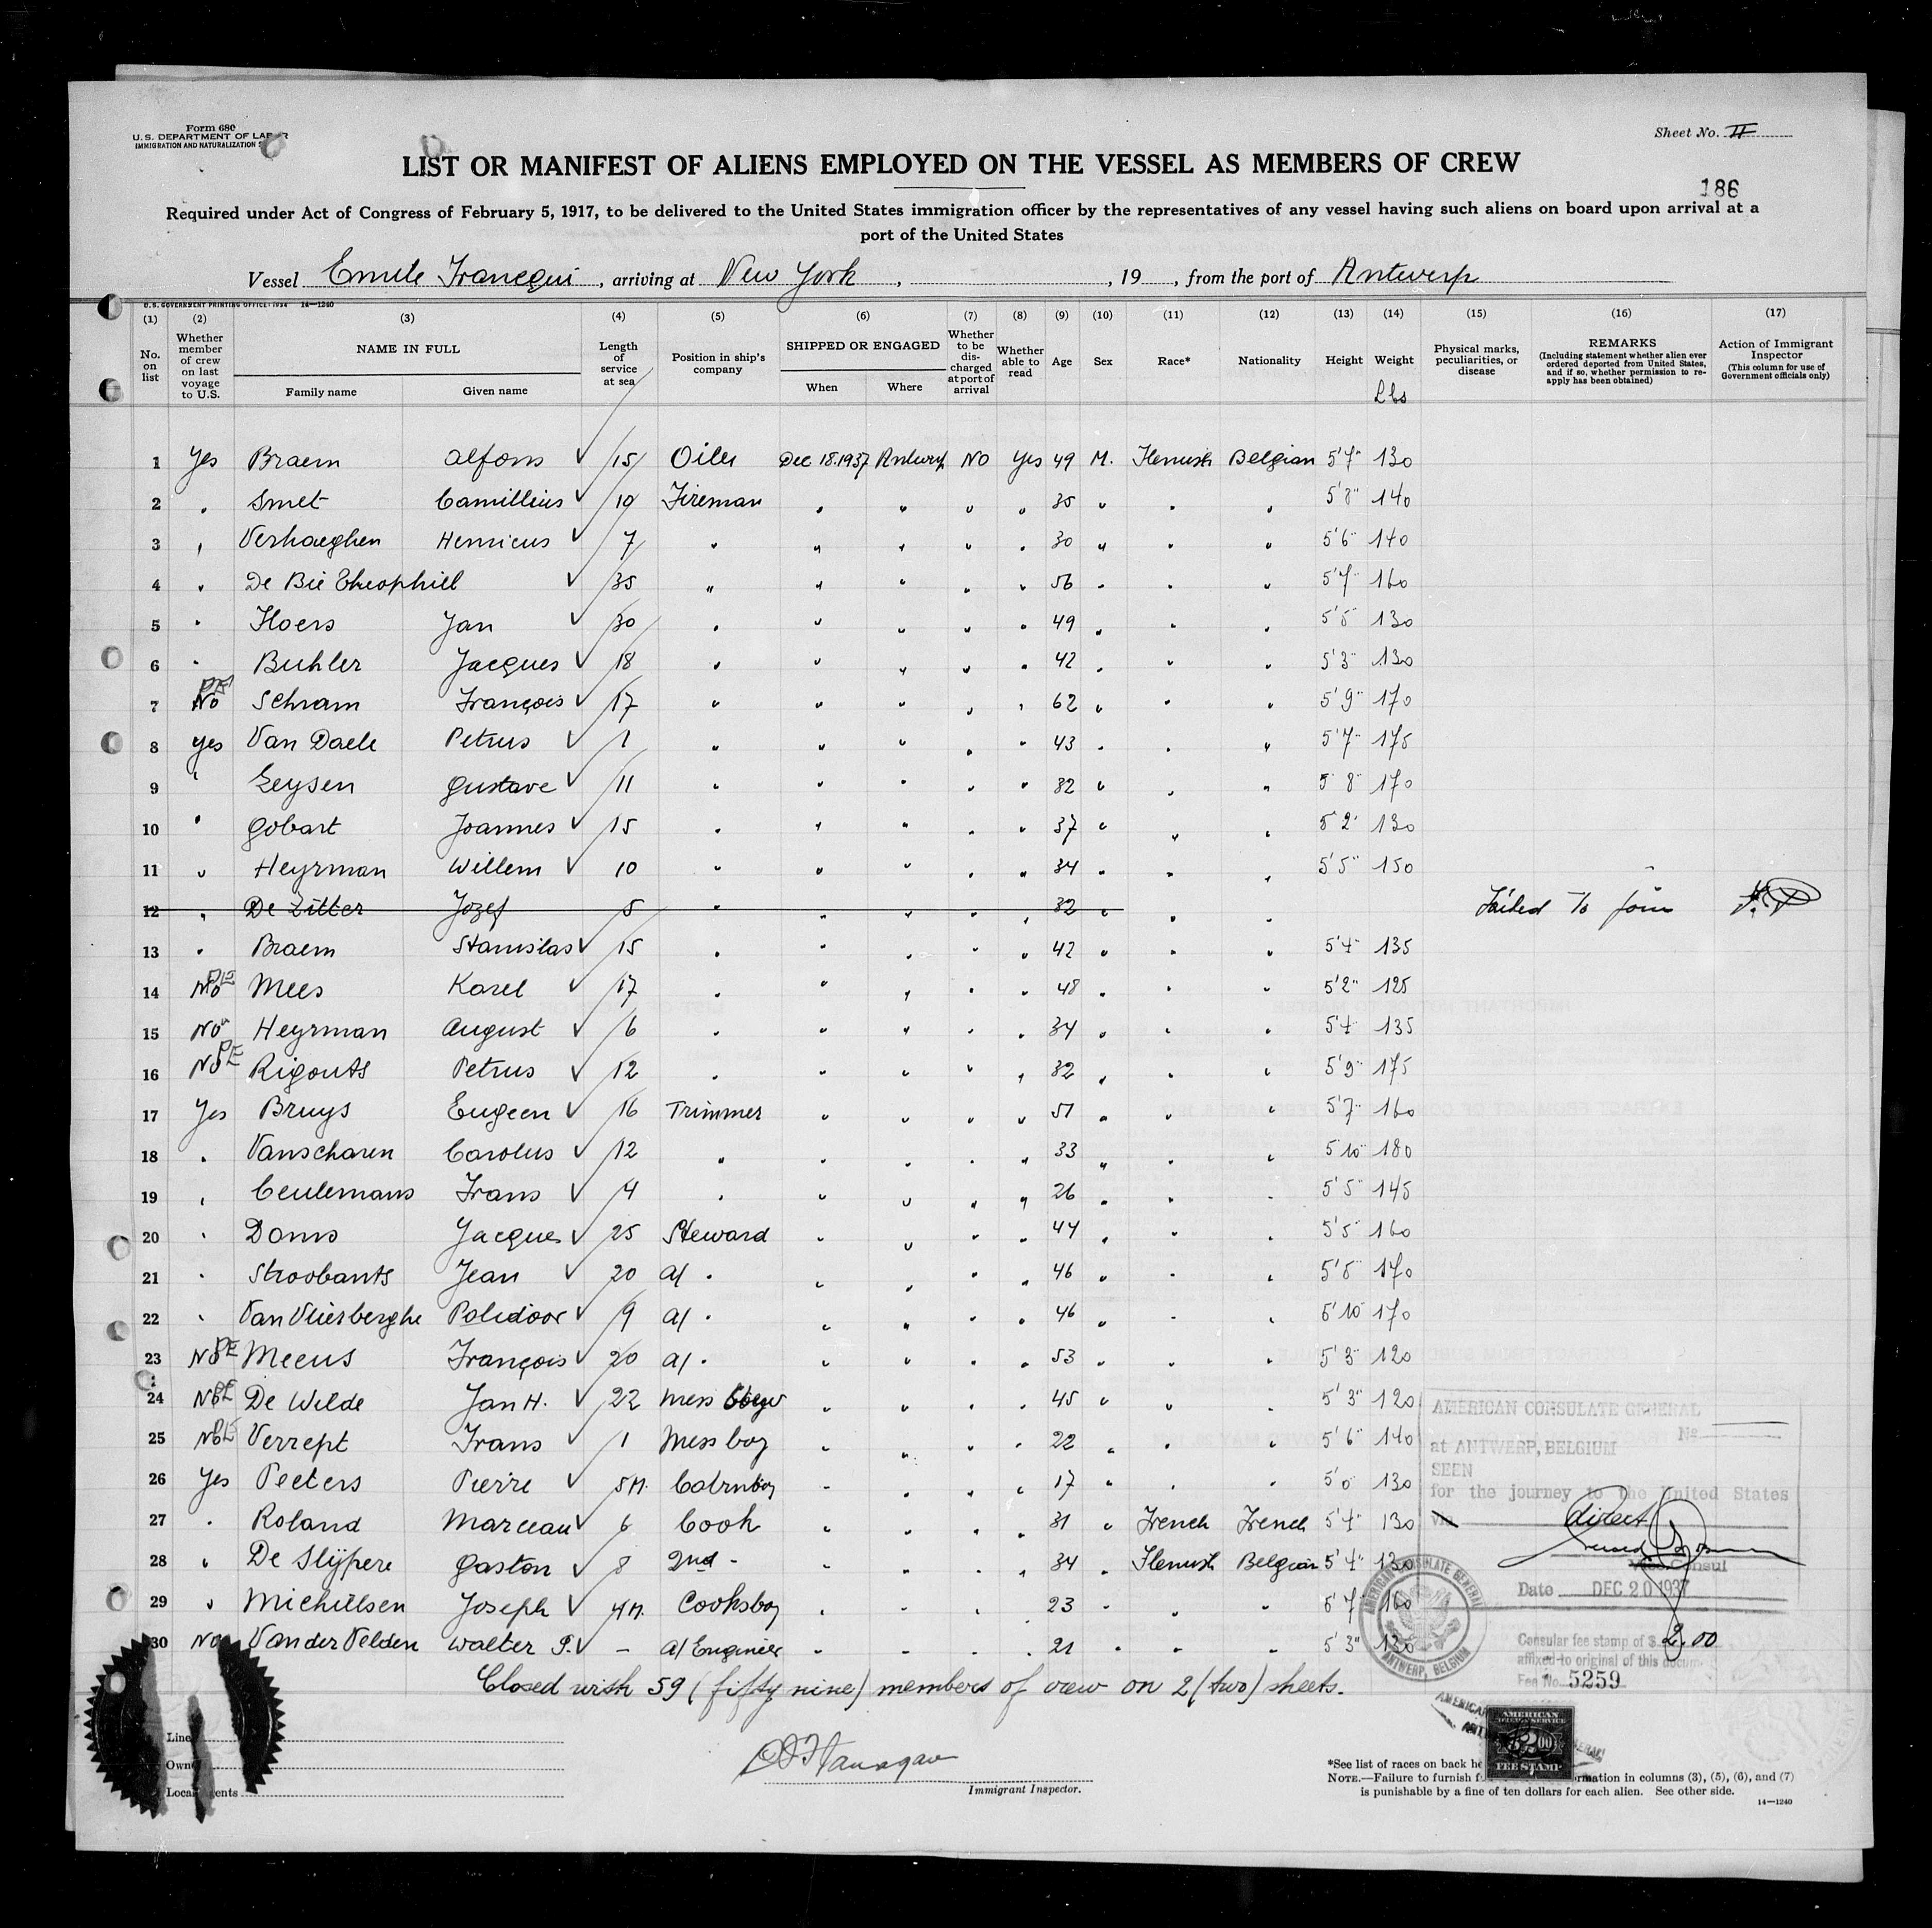 Form 680
U. S. DEPARTMENT OF LABOR
IMMIGRATION AND NATURALIZATION
Sheet No. II
LIST OR MANIFEST OF ALIENS EMPLOYED ON THE VESSEL AS MEMBERS OF CREW
186
Required under Act of Congress of February 5, 1917, to be delivered to the United States immigration officer by the representatives of any vessel having such aliens on board upon arrival at a
port of the United States
Vessel Emile Francqui, arriving at New York, , 19 , from the port of Antwerp
U. S. GOVERNMENT PRINTING OFFICE: 1934 14—1240
(1) (2) (3) (4) (5) (6) (7) (8) (9) (10) (11) (12) (13) (14) (15) (16) (17)
No. on list
Whether member of crew on last voyage to U.S.
NAME IN FULL
Family name Given name
Length of service at sea
Position in ship's company
SHIPPED OR ENGAGED
When Where
Whether to be discharged at port of arrival
Whether able to read
Age Sex Race* Nationality Height Weight
Lbs
Physical marks, peculiarities, or disease
REMARKS
(Including statement whether alien ever ordered deported from United States, and if so, whether permission to reapply has been obtained)
Action of Immigrant Inspector
(This column for use of Government officials only)
1 Yes Braem Alfons ✓ 15 Oiler Dec 18.1937 Antwerp No Yes 49 M. Flemish Belgian 5'7" 130
2 " Smet Camillius ✓ 10 Fireman " " " " 35 " " " 5'8" 140
3 " Verhaeghen Henricus ✓ 7 " " " " " 30 " " " 5'6" 140
4 " De Bie Theophiel ✓ 35 " " " " " 56 " " " 5'7" 160
5 " Floers Jan ✓ 30 " " " " " 49 " " " 5'5" 130
6 " Buhler Jacques ✓ 18 " " " " " 42 " " " 5'3" 130
7 No Schram François ✓ 17 " " " " " 62 " " " 5'9" 170
8 yes Van Daele Petrus ✓ 1 " " " " " 43 " " " 5'7" 175
9 " Zeysen Gustave ✓ 11 " " " " " 32 " " " 5'8" 170
10 " Gobart Joannes ✓ 15 " " " " " 37 " " " 5'2" 130
11 " Heyrman Willem ✓ 10 " " " " " 34 " " " 5'5" 150
12 " De Zitter Jozef 5 " " " " " 32 " " " Failed To join
13 " Braem Stanislas ✓ 15 " " " " " 42 " " " 5'4" 135
14 No Mees Karel ✓ 17 " " " " " 48 " " " 5'2" 125
15 No Heyrman August ✓ 6 " " " " " 34 " " " 5'4" 135
16 No Rigouts Petrus ✓ 12 " " " " " 32 " " " 5'9" 175
17 Yes Bruys Eugeen ✓ 16 Trimmer " " " " 51 " " " 5'7" 160
18 " Vanscharen Carolus ✓ 12 " " " " " 33 " " " 5'10" 180
19 " Ceulemans Frans ✓ 4 " " " " " 26 " " " 5'5" 145
20 " Doms Jacques ✓ 25 Steward " " " " 44 " " " 5'5" 160
21 " Stroobants Jean ✓ 20 a/ " " " " " 46 " " " 5'8" 170
22 " Van Vliesberghe Polidoor ✓ 9 a/ " " " " " 46 " " " 5'10" 170
23 No Meeus François ✓ 20 a/ " " " " " 53 " " " 5'3" 120
24 No De Wilde Jan H. ✓ 22 Mess " " " " 45 " " " 5'3" 120
25 No Verrept Frans ✓ 1 Mess boy " " " " 22 " " " 5'6" 140
26 Yes Peeters Pierre ✓ 5M. " " " " 17 " " " 5'0" 130
27 " Roland Marceau ✓ 6 Cook " " " " 31 " French French 5'4" 130
28 " De Slijpere Gaston ✓ 8 2nd " " " " " 34 " Flemish Belgian 5'4" 130
29 " Michielsen Joseph ✓ 4M. Cooksboy " " " " 23 " " " 5'7" 160
30 No Van der Velden Walter P. ✓ — a/ Engineer " " " " 21 " " " 5'3" 130
Closed with 59 (fifty nine) members of crew on 2 (two) sheets.
AMERICAN CONSULATE GENERAL
at ANTWERP, BELGIUM No
SEEN
for the journey to the United States
via direct
Vice Consul
Date DEC 20 1937
Consular fee stamp of $ 2.00
affixed to original of this docum
Fee No. 5259
AMERICAN CONSULATE GENERAL
ANTWERP, BELGIUM
AMERICAN
FEE STAMP
Line
Owner
Local Agents
Immigrant Inspector.
*See list of races on back he
NOTE.—Failure to furnish f rmation in columns (3), (5), (6), and (7)
is punishable by a fine of ten dollars for each alien. See other side.
14—1240